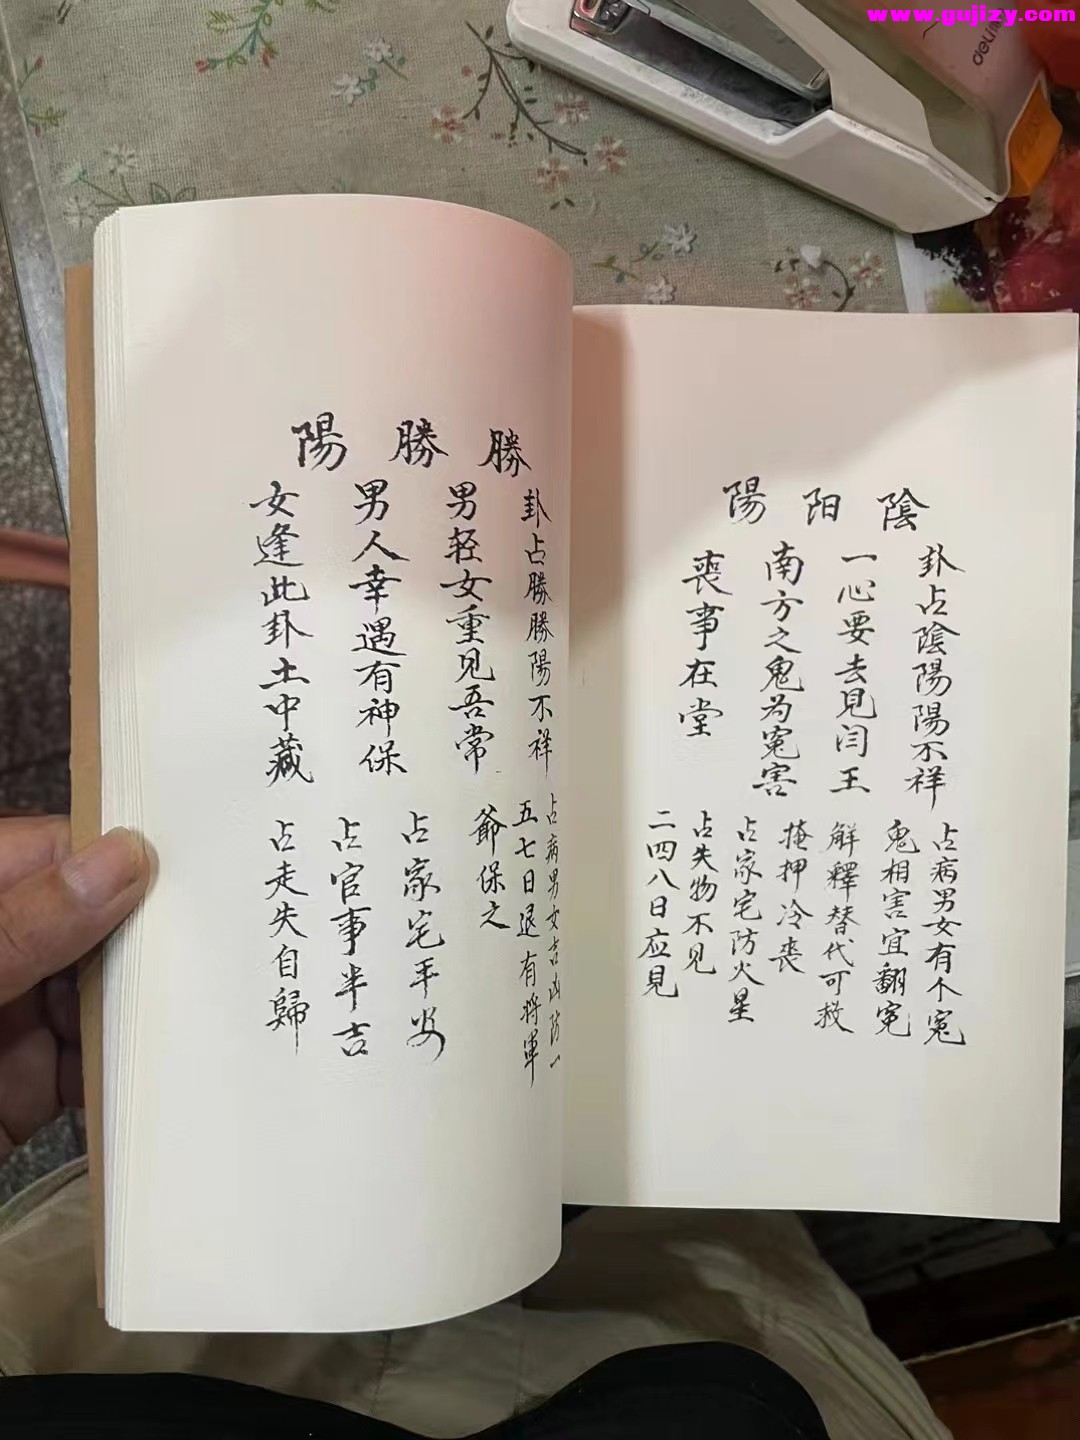 www.gujizy.com
deli
陰阳陽
卦占陰陽陽不祥
一心要去見闫王
南方之鬼为冤害
喪事在堂
占病男女有个冤
鬼相害宜翻冤
解釋替代可救
掩押冷喪
占家宅防火星
占失物不见
二四八日应見
勝勝陽
卦占勝勝陽不祥
男轻女重见吾常
男人幸遇有神保
女逢此卦土中藏
占病男女吉凶防一
五七日退有将軍
爺保之
占家宅平安
占官事半吉
占走失自歸